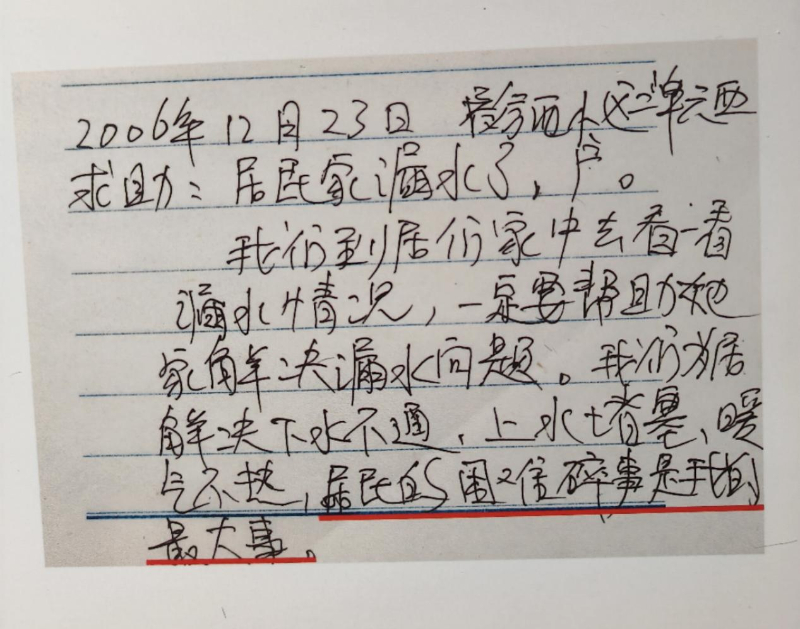 2006年12月23日 二单元西
求助：居民家漏水了，户。
我们到居们家中去看一看
漏水情况，一定要帮助她
家解决漏水问题。我们为居
解决下水不通、上水堵塞、暖
气不热，居民的困难琐碎事是我们
最大事。